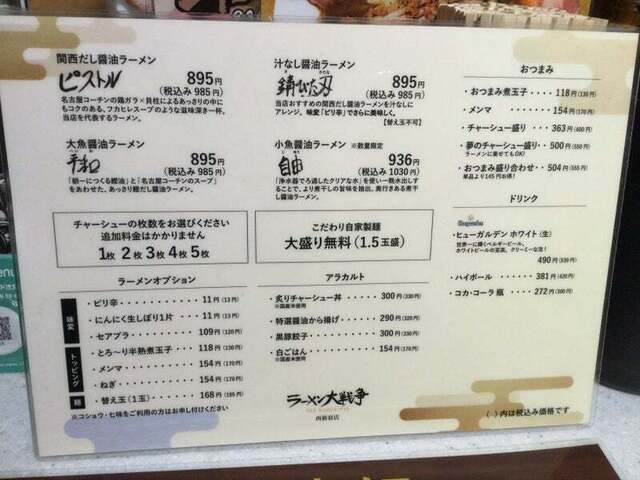 関西だし醤油ラーメン
ピストル
895円
(税込み 985円)
名古屋コーチンの鶏ガラ×貝柱によるあっさりの中に
もコクのある、フカヒレスープのような滋味深き一杯。
当店を代表するラーメン。
汁なし醤油ラーメン
錆びた刃
895円
(税込み 985円)
当店おすすめの関西だし醤油ラーメンを汁なしに
アレンジ。味変「ピリ辛」でさらに美味しく。
【替え玉不可】
大魚醤油ラーメン
平和
895円
(税込み 985円)
「朝一につくる鰹油」と「名古屋コーチンのスープ」
をあわせた、あっさり鰹だし醤油ラーメン。
小魚醤油ラーメン ※数量限定
自由
936円
(税込み 1030円)
「浄水器でろ過したクリアな水」を使い一晩水出しす
ることで、より煮干しの旨味を抽出。奥行きある煮干
し醤油ラーメン。
チャーシューの枚数をお選びください
追加料金はかかりません
1枚 2枚 3枚 4枚 5枚
こだわり自家製麺
大盛り無料(1.5玉盛)
ラーメンオプション
味変
・ピリ辛・・・・・・・・・ 11円(13円)
・にんにく生しぼり1片・・・・ 11円(13円)
・セアブラ・・・・・・・・ 109円(120円)
トッピング
・とろ〜り半熟煮玉子・・・・ 118円(130円)
・メンマ・・・・・・・・・ 154円(170円)
・ねぎ・・・・・・・・・・ 154円(170円)
麺
・替え玉(1玉)・・・・・・ 168円(185円)
※コショウ・七味をご利用の方はお申し付けください
アラカルト
・炙りチャーシュー丼・・・・・ 300円(330円)
※国産米使用
・特選醤油から揚げ・・・・・ 290円(320円)
・黒豚餃子・・・・・・・・ 300円(330円)
・白ごはん・・・・・・・・ 154円(170円)
※国産米使用
ラーメン大戦争
西新宿店
おつまみ
・おつまみ煮玉子・・・・ 118円(130円)
・メンマ・・・・・・・ 154円(170円)
・チャーシュー盛り・・・ 363円(400円)
・夢のチャーシュー盛り・・ 500円(550円)
ラーメンに乗せてもOK!
・おつまみ盛り合わせ・・ 504円(555円)
単品より145円お得!
ドリンク
Hoegaarden
・ヒューガルデン ホワイト(生)
世界一に輝くベルギービール。
ホワイトビールの王道、クリーミーな泡!
490円(539円)
・ハイボール・・・・・ 381円(420円)
・コカ・コーラ 瓶・・・・ 272円(300円)
( )内は税込み価格です